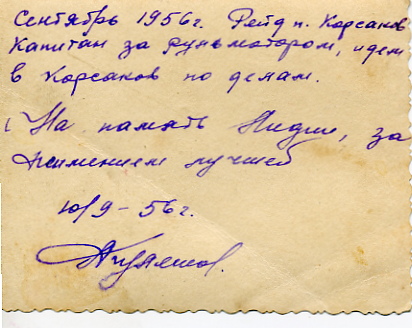 Сентябрь 1956г. Рейд п. Корсаков
Капитан за рульмотором, идем
в Корсаков по делам.
На память Лидии, за
неимением лучшей
10/9-56г.